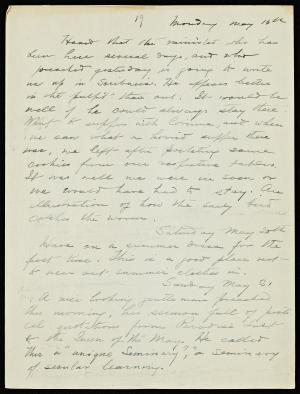 19 Monday May 15th
Heard that the minister who has
been here several days, and who
preached yesterday is going to write
us up in Scribners. He appears better
in the pulpit than out. It would be
well if he could always stay there.
Went to supper with and when
we saw what a horrid supper there
was, we left after pocketing some
cookies from our respective tables.
It was well we were so soon or
we would have had to stay. An
illustration of how the early bird
catches the worm.
Saturday May 20th
Have on a summer dress for the
first time. This is a good place not
to wear out summer clothes in.
Sunday May 21
A nice looking gentleman preached
this morning, his sermon full of poeti
cal quotations from Paradise Lost
to the Queen of the May. He called
this a "unique Seminary," a seminary
of secular learning.